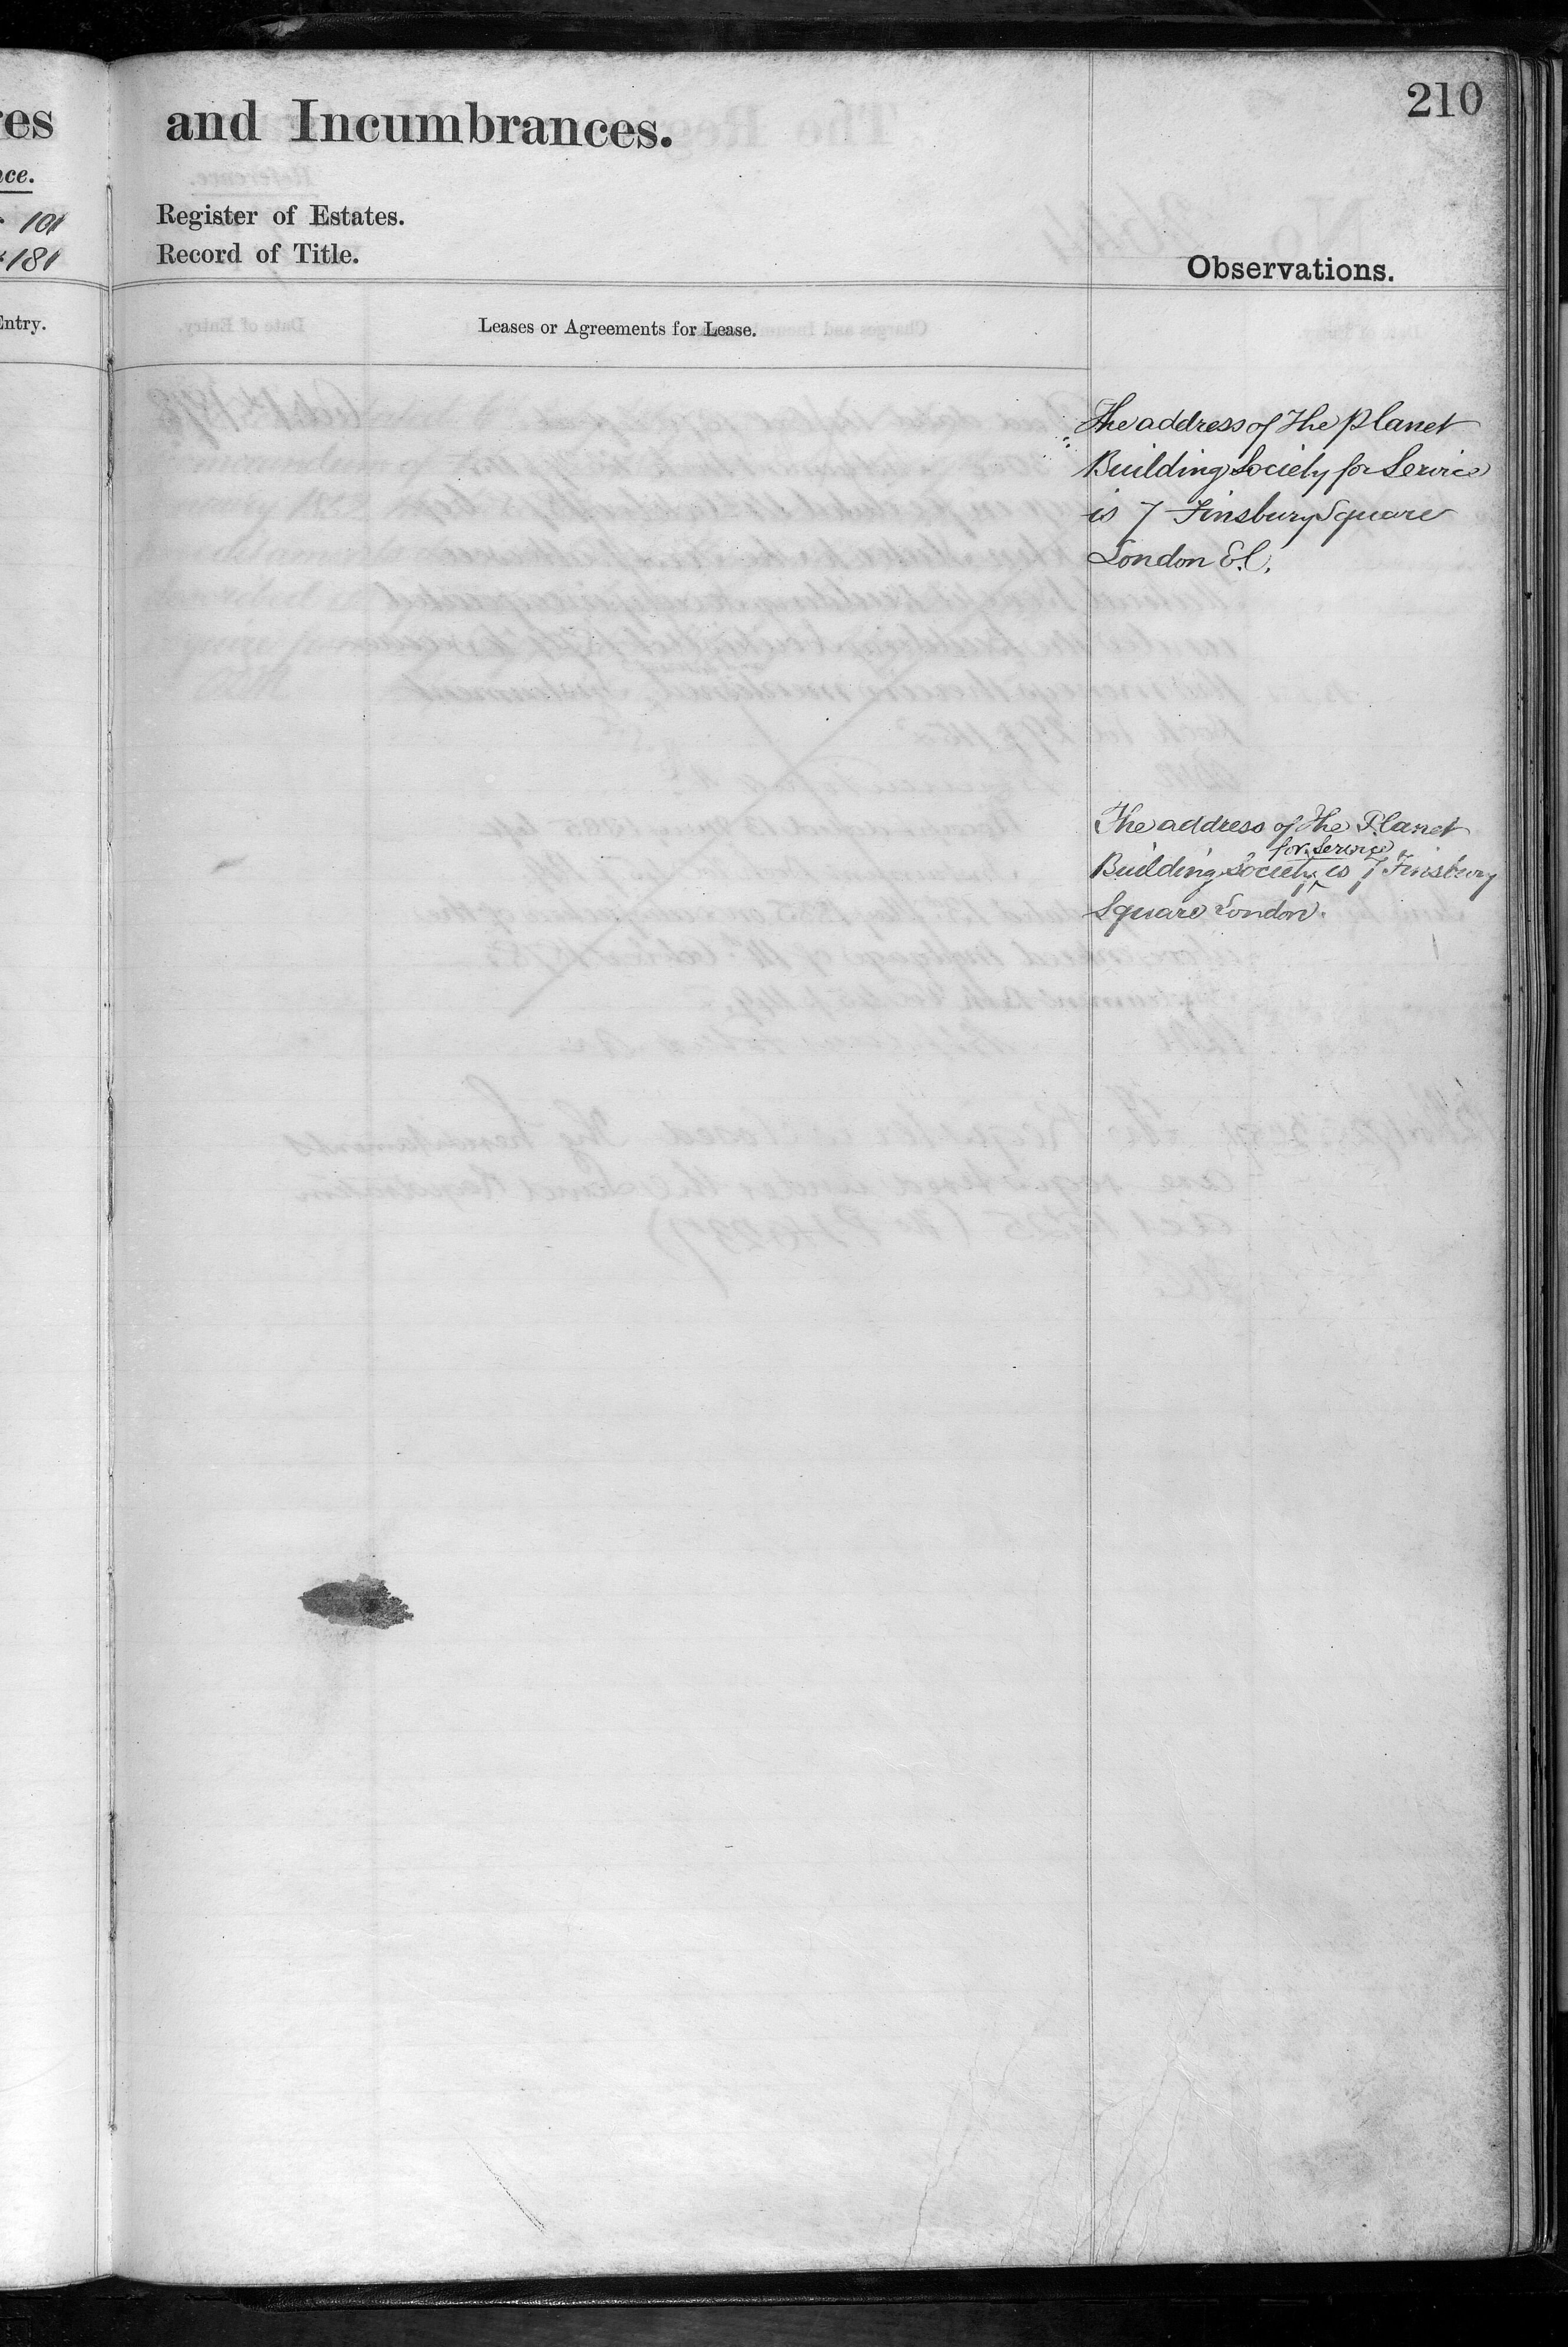 210
and Incumbrances.
Register of Estates.
Record of Title.
Observations.
Leases or Agreements for Lease.
The address of The Planet
Building Society for Service
is 7 Finsbury Square
London E.C.
The address of The Planet
for Service
Building Society is 7 Finsbury
Square London.
es
ce.
101
181
Entry.